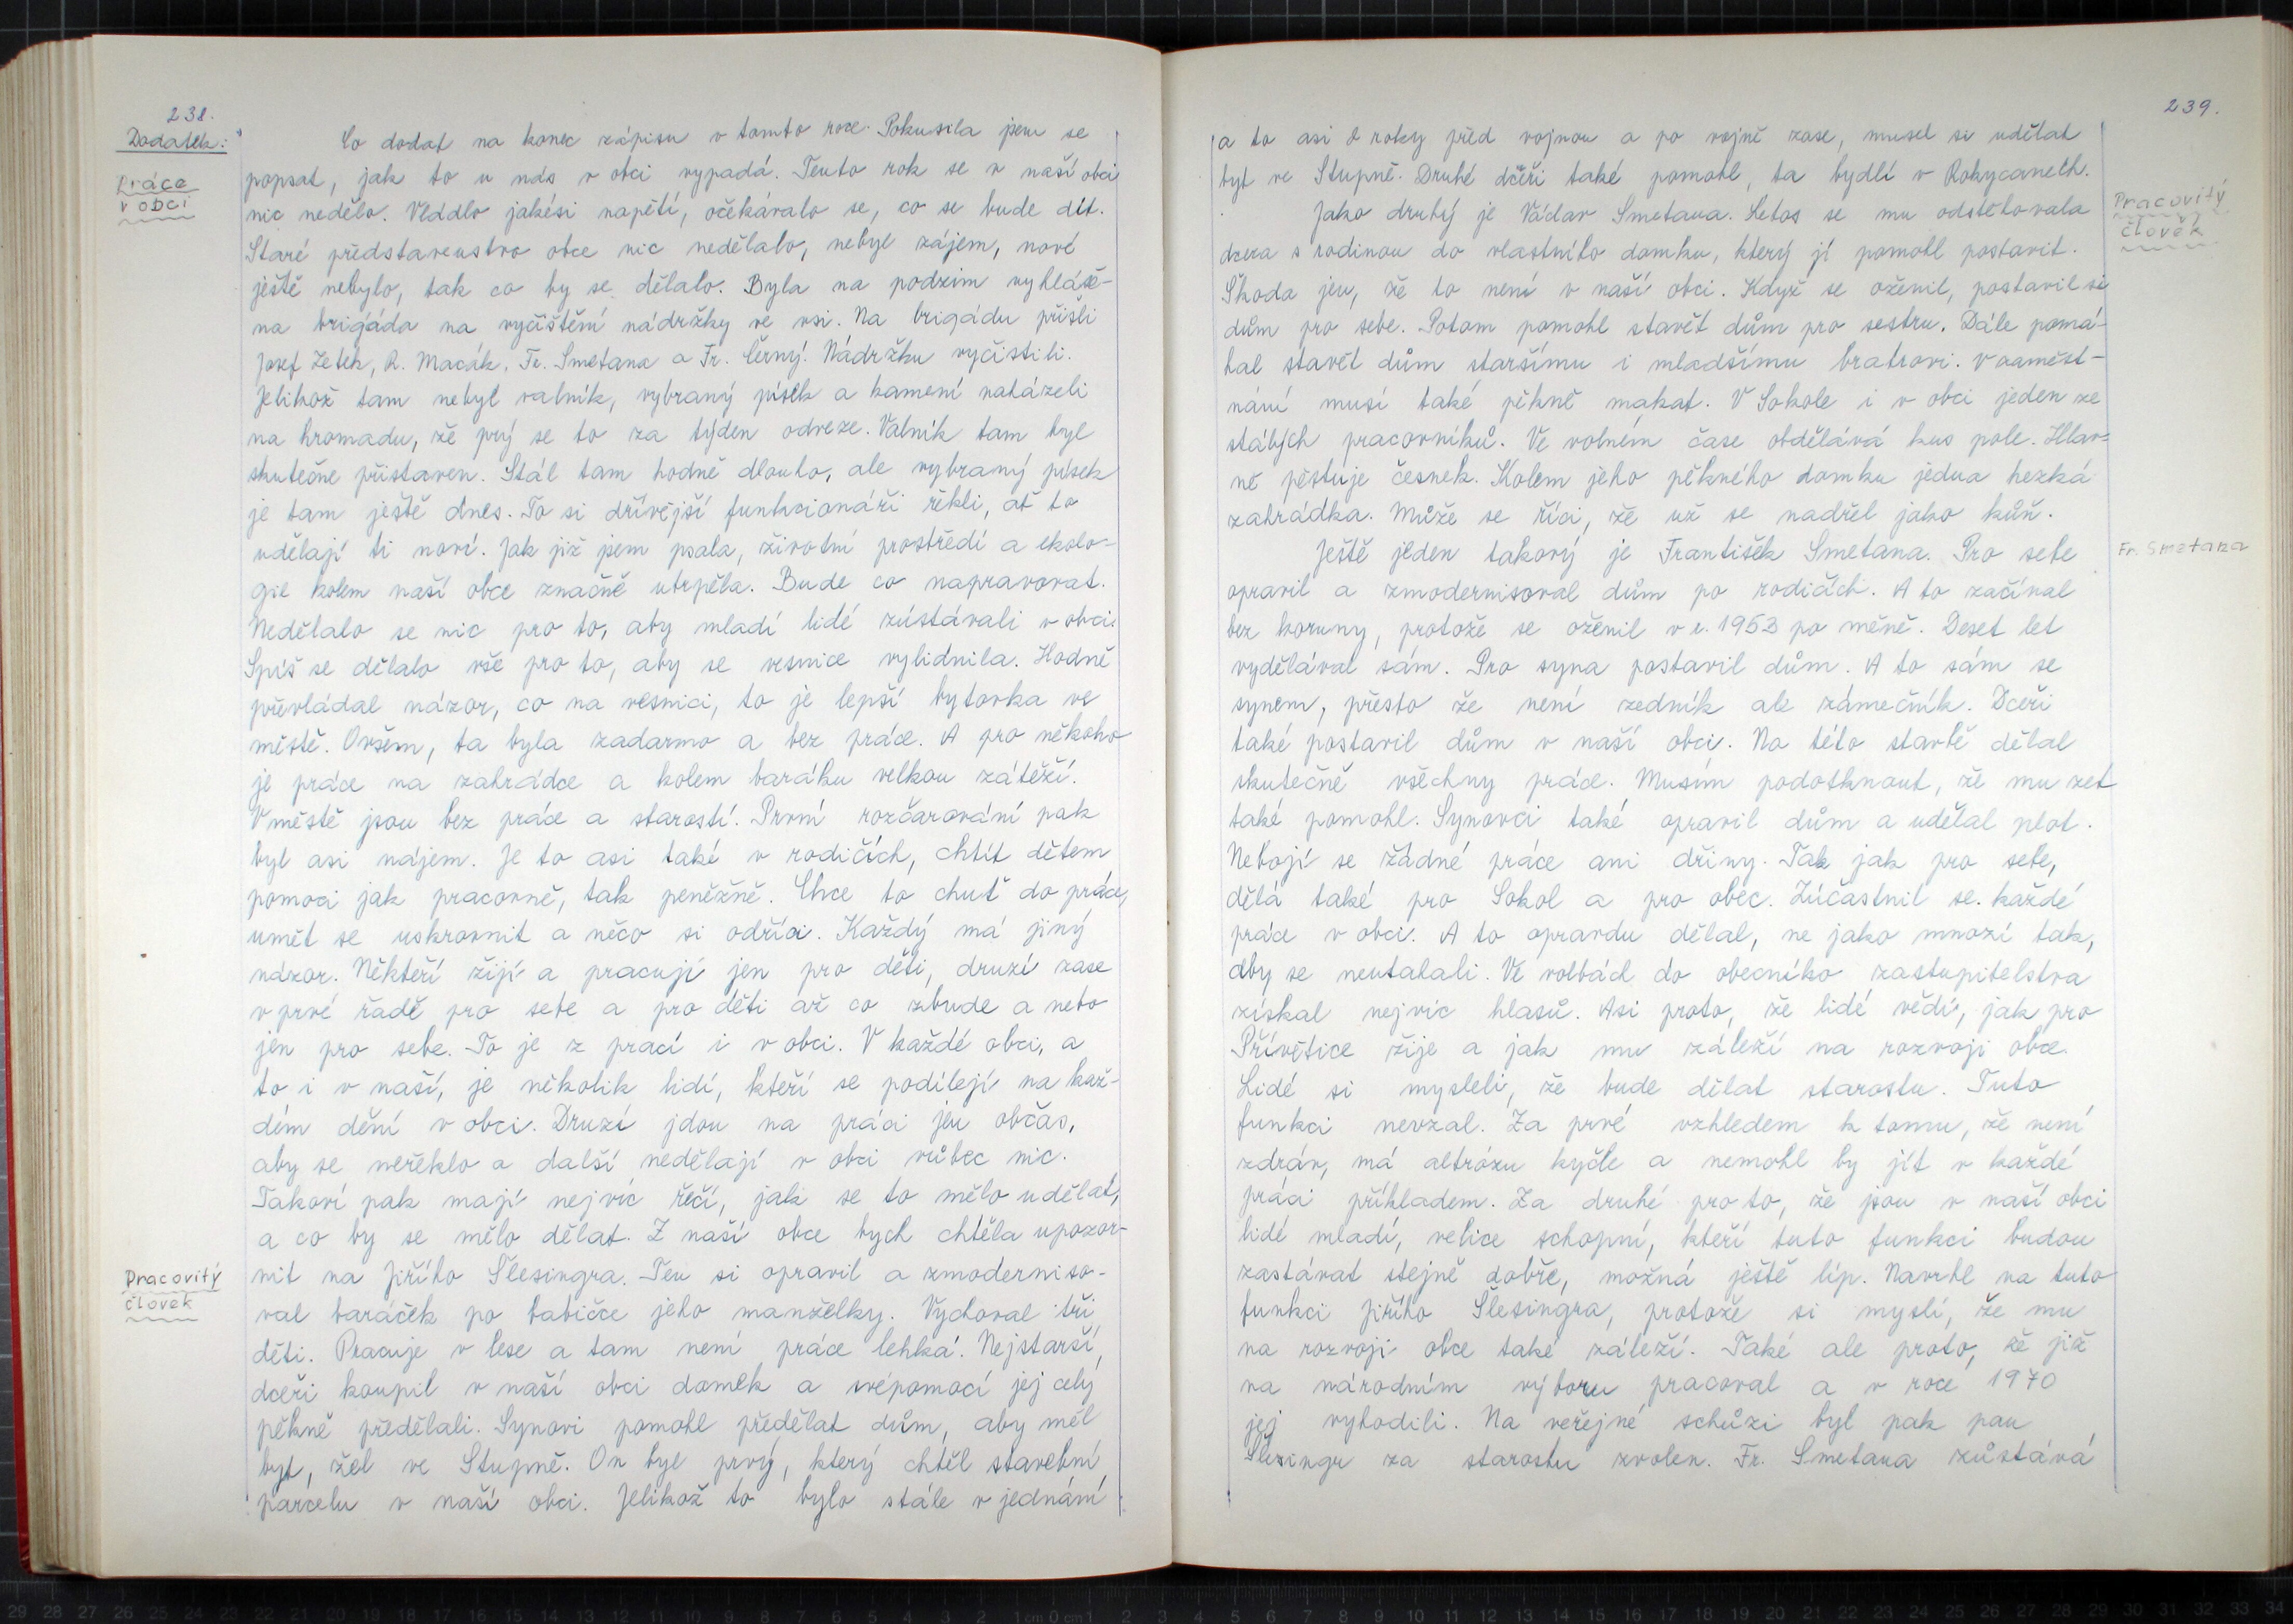 238.
Dodatek:
Co dodat na konec zápisu v tomto roce. Pokusila jsem se
popsat, jak to u nás v obci vypadá. Tento rok se v naší obci
Práce
v obci
nic nedělo. Vládlo jakési napětí, očekávalo se, co se bude dít.
Staré představenstvo obce nic nedělalo, nebyl zájem, nové
ještě nebylo, tak co by se dělalo. Byla na podzim vyhláše-
na brigáda na vyčištění nádržky ve vsi. Na brigádu přišli
Josef Zetek, R. Macák, Fr. Smetana a Fr. Černý. Nádržku vyčistili.
Jelikož tam nebyl valník, vybraný písek a kamení naházeli
na hromadu, že prý se to za týden odveze. Valník tam byl
skutečne přistaven. Stál tam hodně dlouho, ale vybraný písek
je tam ještě dnes. To si dřívější funkcionáři řekli, ať to
udělají ti noví. Jak již jsem psala, životní prostředí a ekolo-
gie kolem naší obce značně utrpěla. Bude co napravovat.
Nedělalo se nic pro to, aby mladí lidé zůstávali v obci.
Spíš se dělalo vše pro to, aby se vesnice vylidnila. Hodně
převládal názor, co na vesnici, to je lepší bytovka ve
městě. Ovšem, ta byla zadarmo a bez práce. A pro někoho
je práce na zahrádce a kolem baráku velkou zátěží.
V městě jsou bez práce a starostí. První rozčarování pak
byl asi nájem. Je to asi také v rodičích, chtít dětem
pomoci jak pracovně, tak peněžně. Chce to chuť do práce,
umět se uskrovnit a něco si odříci. Každý má jiný
názor. Někteří žijí a pracují jen pro děti, druzí zase
v prvé řadě pro sebe a pro děti až co zbude a nebo
jen pro sebe. To je z prací i v obci. V každé obci, a
to i v naší, je několik lidí, kteří se podílejí na kaž-
dém dění v obci. Druzí jdou na práci jen občas,
aby se neřeklo a další nedělají v obci vůbec nic.
Takoví pak mají nejvíc řečí, jak se to mělo udělat,
a co by se mělo dělat. Z naší obce bych chtěla upozor-
Pracovitý
člověk
nit na Jiřího Šlesingra. Ten si opravil a zmoderniso-
val baráček po babičce jeho manželky. Vychoval tři
děti. Pracuje v lese a tam není práce lehká. Nejstarší
dceři koupil v naší obci domek a svépomocí jej celý
pěkně předělali. Synovi pomohl předělat dům, aby měl
byt, žel ve Stupně. On byl prvý, který chtěl stavební
parcelu v naší obci. Jelikož to bylo stále v jednání
239.
a to asi 2 roky před vojnou a po vojně zase, musel si udělat
byt ve Stupně. Druhé dceři také pomohl, ta bydlí v Rokycanech.
Pracovitý
člověk
Jako druhý je Václav Smetana. Letos se mu odstěhovala
dcera s rodinou do vlastního domku, který jí pomohl postavit.
Škoda jen, že to není v naší obci. Když se oženil, postavil si
dům pro sebe. Potom pomohl stavět dům pro sestru. Dále pomá-
hal stavět dům staršímu i mladšímu bratrovi. V zaměst-
nání musí také pěkně makat. V Sokole i v obci jeden ze
stálých pracovníků. Ve volném čase obdělává kus pole. Hlav-
ně pěstuje česnek. Kolem jeho pěkného domku jedna hezká
zahrádka. Může se říci, že už se nadřel jako kůň.
Fr. Smetana
Ještě jeden takový je František Smetana. Pro sebe
opravil a zmodernisoval dům po rodičích. A to začínal
bez koruny, protože se oženil v r. 1953 po měně. Deset let
vydělával sám. Pro syna postavil dům. A to sám se
synem, přesto že není zedník ale zámečník. Dceři
také postavil dům v naší obci. Na této stavbě dělal
skutečně všechny práce. Musím podotknout, že mu zet
také pomohl. Synovci také opravil dům a udělal plot.
Nebojí se žádné práce ani dřiny. Tak jak pro sebe,
dělá také pro Sokol a pro obec. Zúčastnil se každé
práce v obci. A to opravdu dělal, ne jako mnozí tak,
aby se neutahali. Ve volbách do obecního zastupitelstva
získal nejvíc hlasů. Asi proto, že lidé vědí, jak pro
Přívětice žije a jak mu záleží na rozvoji obce.
Lidé si mysleli, že bude dělat starostu. Tuto
funkci nevzal. Za prvé vzhledem k tomu, že není
zdráv, má altrózu kyčle a nemohl by jít v každé
práci příkladem. Za druhé pro to, že jsou v naší obci
lidé mladí, velice schopní, kteří tuto funkci budou
zastávat stejně dobře, možná ještě líp. Navrhl na tuto
funkci Jiřího Šlesingra, protože si myslí, že mu
na rozvoji obce také záleží. Také ale proto, že již
na národním výboru pracoval a v roce 1970
jej vyhodili. Na veřejné schůzi byl pak pan
Šlesingr za starostu zvolen. Fr. Smetana zůstává